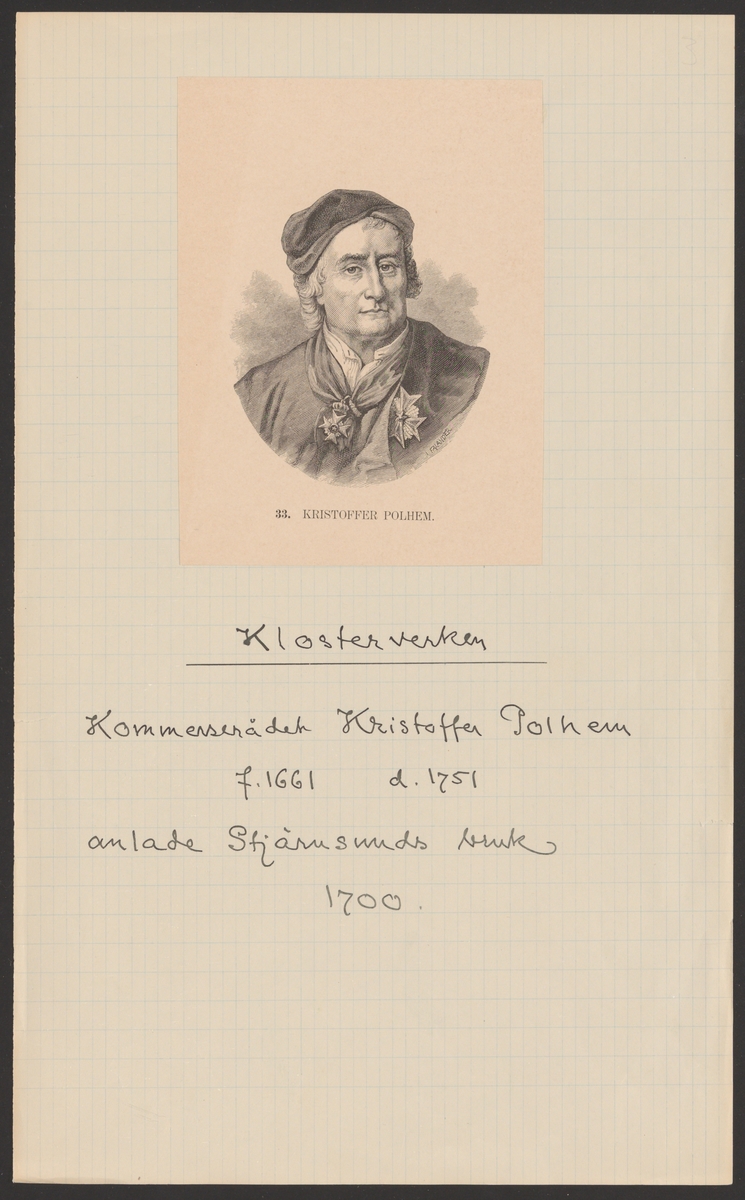 33. KRISTOFFER POLHEM.
Klosterverken
Kommerserådet Kristoffer Polhem
f. 1661 d. 1751
anlade Stjärnsunds bruk
1700.